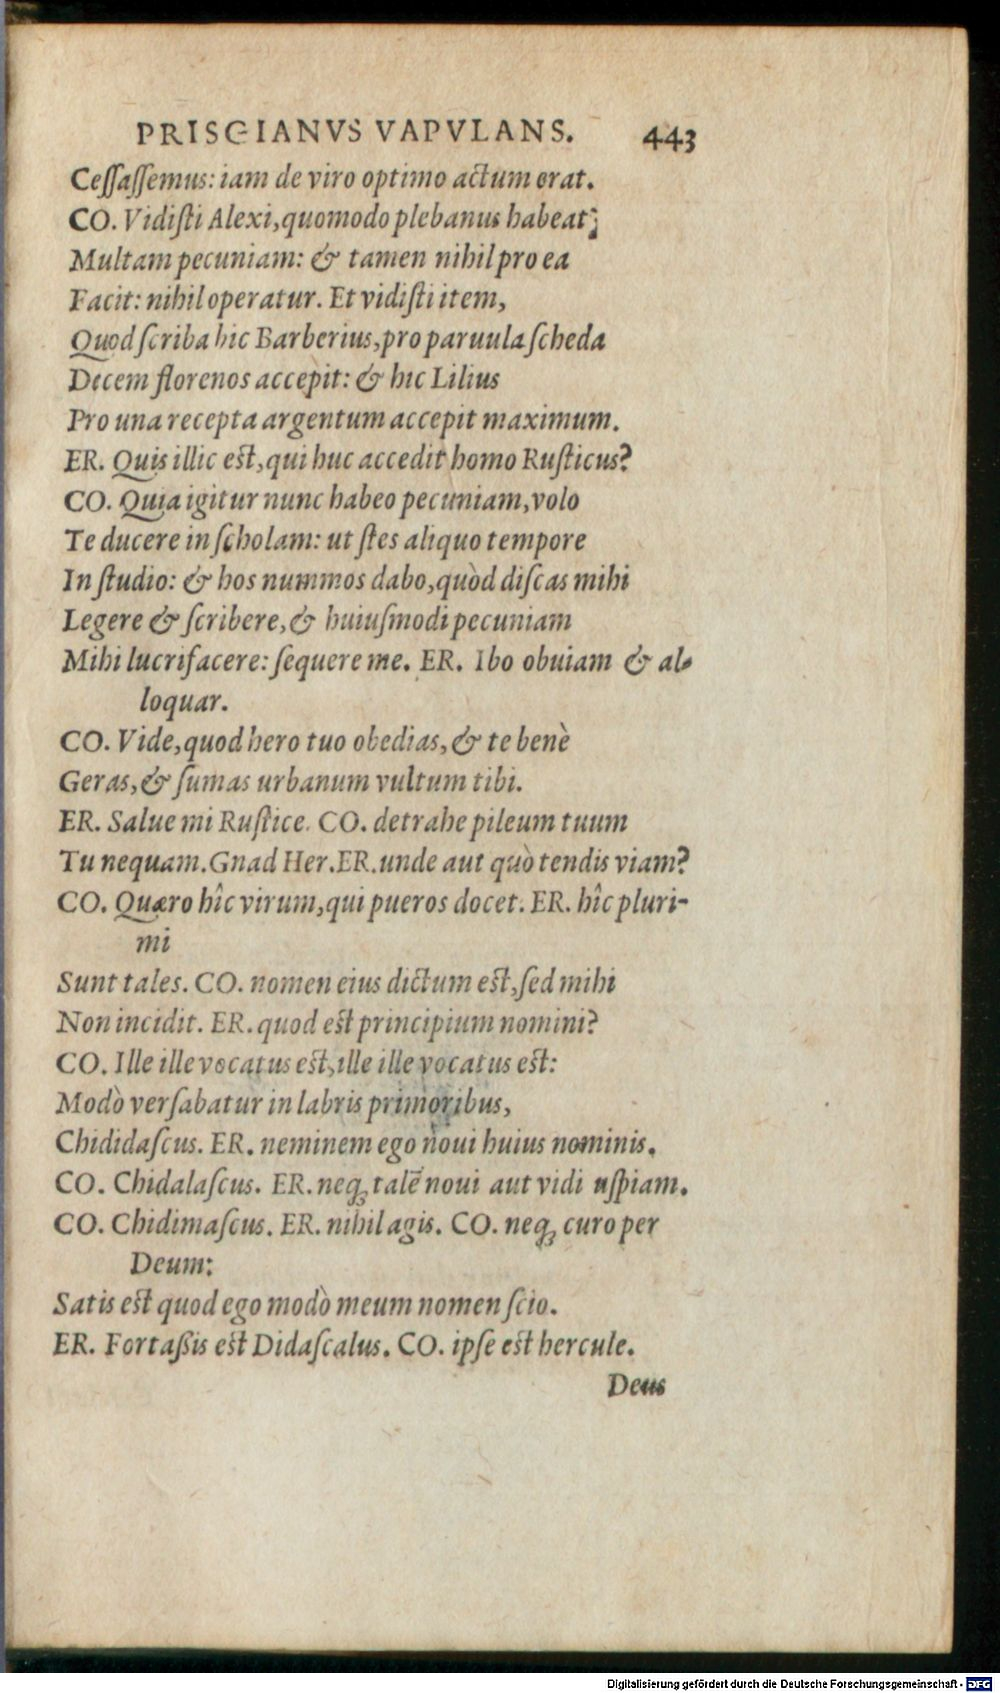 PRISCIANVS VAPVLANS. 443
Ceſſaſſemus: iam de viro optimo actum erat.
CO. Vidiſti Alexi, quomodo plebanus habeat;
Multam pecuniam: & tamen nihil pro ea
Facit: nihil operatur. Et vidiſti item,
Quod ſcriba hic Barberius, pro paruula ſcheda
Decem florenos accepit: & hic Lilius
Pro una recepta argentum accepit maximum.
ER. Quis illic est, qui huc accedit homo Ruſticus?
CO. Quia igitur nunc habeo pecuniam, volo
Te ducere in ſcholam: ut ſtes aliquo tempore
In ſtudio: & hos nummos dabo, quòd diſcas mihi
Legere & ſcribere, & huiuſmodi pecuniam
Mihi lucrifacere: ſequere me. ER. Ibo obuiam & al-
loquar.
CO. Vide, quod hero tuo obedias, & te benè
Geras, & ſumas urbanum vultum tibi.
ER. Salue mi Ruſtice. CO. detrahe pileum tuum
Tu nequam. Gnad Her. ER. unde aut quò tendis viam?
CO. Quæro hîc virum, qui pueros docet. ER. hîc pluri-
mi
Sunt tales. CO. nomen eius dictum est, ſed mihi
Non incidit. ER. quod est principium nomini?
CO. Ille ille vocatus est, ille ille vocatus est:
Modò verſabatur in labris primoribus,
Chididaſcus. ER. neminem ego noui huius nominis.
CO. Chidalaſcus. ER. neq; talē noui aut vidi uſpiam.
CO. Chidimaſcus. ER. nihil agis. CO. neq; curo per
Deum:
Satis est quod ego modò meum nomen ſcio.
ER. Fortaßis est Didaſcalus. CO. ipſe est hercule.
Deus
Digitalisierung gefördert durch die Deutsche Forschungsgemeinschaft - DFG